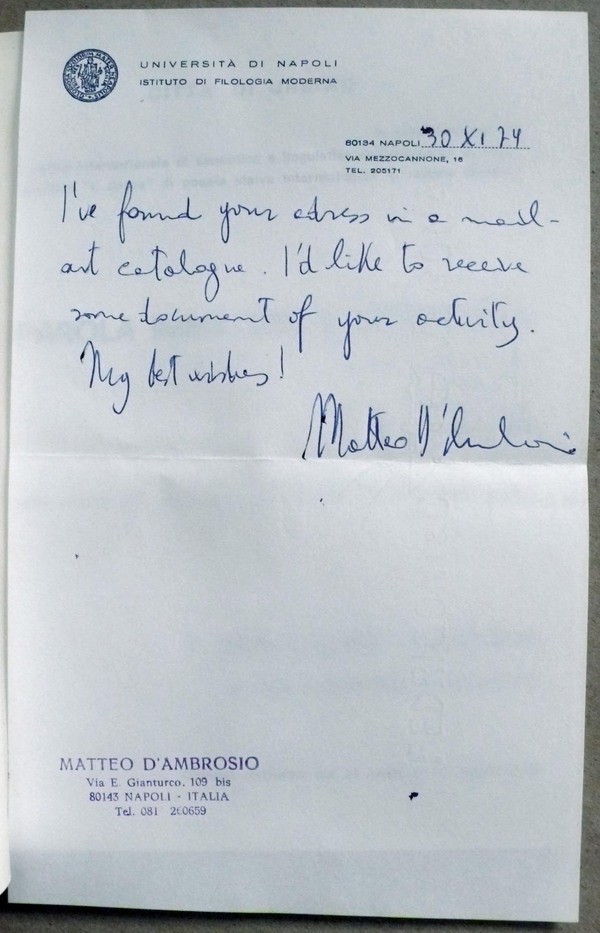 UNIVERSITÀ DI NAPOLI
ISTITUTO DI FILOLOGIA MODERNA
80134 NAPOLI 30 XI 74
VIA MEZZOCANNONE, 16
TEL. 205171
I've found your adress in a mail-
art catalogue. I'd like to receive
some document of your activity.
My best wishes!
Matteo D'Ambrosio
MATTEO D'AMBROSIO
Via E. Gianturco, 109 bis
80143 NAPOLI - ITALIA
Tel. 081